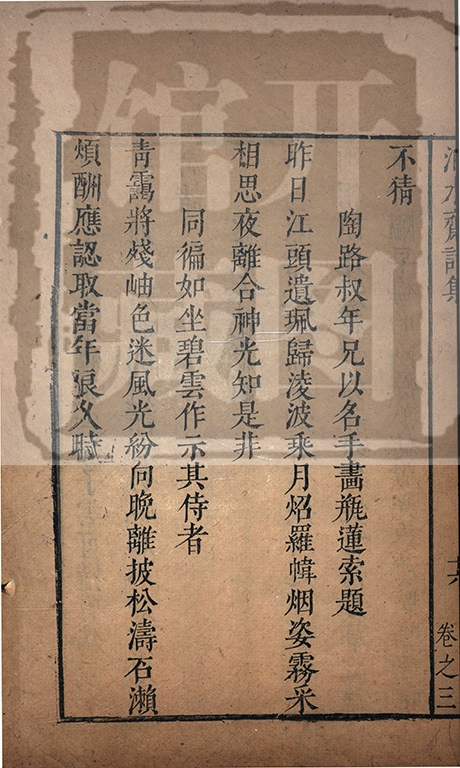 不猜
陶路叔年兄以名手畵甁蓮索題
昨日江頭遺珮歸淩波乘月炤羅幃烟姿霧采
相思夜離合神光知是非
同徧如坐碧雲作示其侍者
青靄將殘岫色迷風光紛向晚離披松濤石瀨
煩酬應認取當年

卷之三